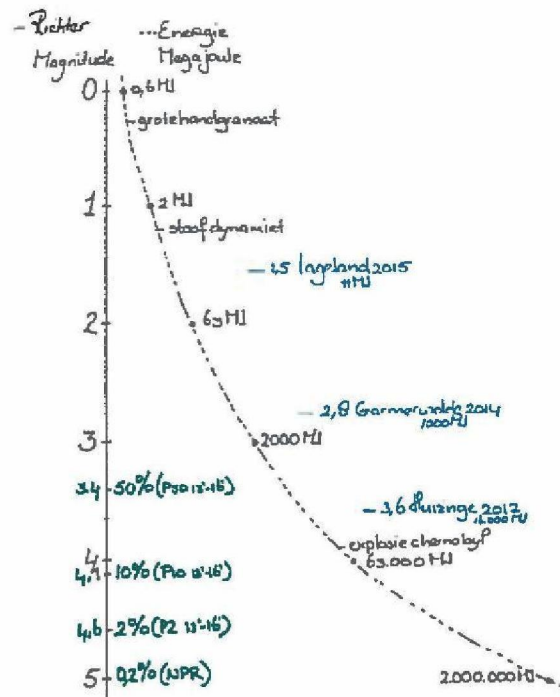 – Richter
Magnitude
--- Energie
Megajoule
0
0,6 MJ
grote handgranaat
1
2 MJ
staaf dynamiet
1,5 Lageland 2015
11 MJ
2
63 MJ
2,8 Garmerwolde 2014
1000 MJ
3
2000 MJ
3.4 50% (P50 15'-16')
3,6 Huizinge 2012
16.000 MJ
explosie chernobyl
4
63.000 MJ
4,1 10% (P10 15'-16')
4,6 2% (P2 15'-16')
5 0,2% (NPR)
2.000.000 MJ